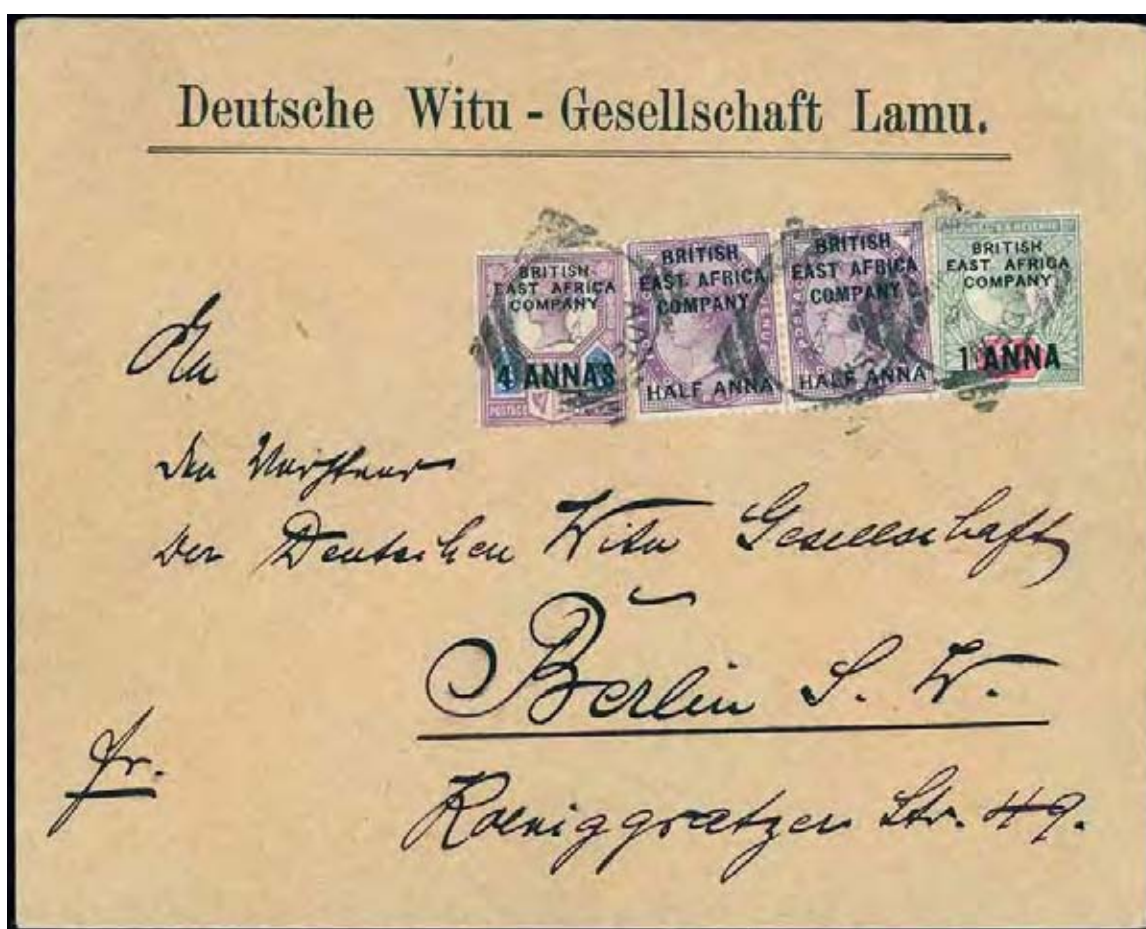 Deutsche Witu - Gesellschaft Lamu.
BRITISH
EAST AFRICA
COMPANY
4 ANNAS
POSTAGE
BRITISH
EAST AFRICA
COMPANY
HALF ANNA
BRITISH
EAST AFRICA
COMPANY
HALF ANNA
BRITISH
EAST AFRICA
COMPANY
1 ANNA
An
den
der Deutschen Witu Gesellschaft
Berlin S. W.
fr.
Koeniggraetzer Str. 49.